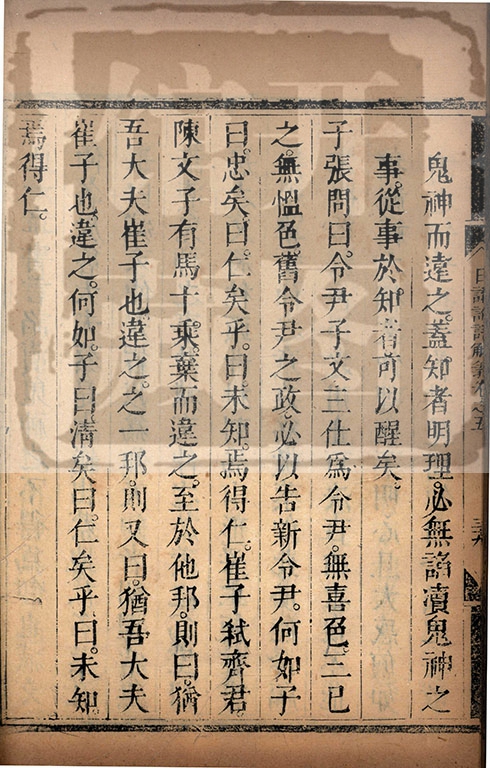 鬼神而違之。蓋知者明理。必無諂瀆鬼神之
事。從事於知者可以醒矣。
子張問曰。令尹子文三仕爲令尹。無喜色。三已
之。無慍色。舊令尹之政。必以告新令尹。何如。子
曰。忠矣。曰。仁矣乎。曰。未知。焉得仁。崔子弒齊君。
陳文子有馬十乘。棄而違之。至於他邦。則曰。猶
吾大夫崔子也。違之。之一邦。則又曰。猶吾大夫
崔子也。違之。何如。子曰。清矣。曰。仁矣乎。曰。未知。
焉得仁。
日講
解義卷之五